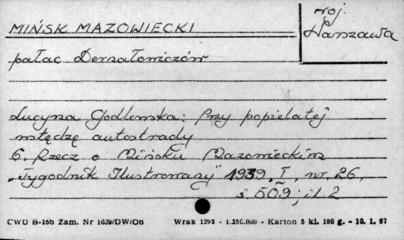 MIŃSK MAZOWIECKI
woj.
Warszawa
pałac Dernałowiczów
Lucyna Godlewska: Przy popielatej
wstędze autostrady
6. Rzecz o Mińsku Mazowieckim
"Tygodnik Ilustrowany" 1939, I, nr. 26,
s. 509; il. 2
CWD B-15b Zam. Nr 1639/DW/On Wrak 1392 - 1.250.000 - Karton 5 kl. 180 g. - 10. 1. 67